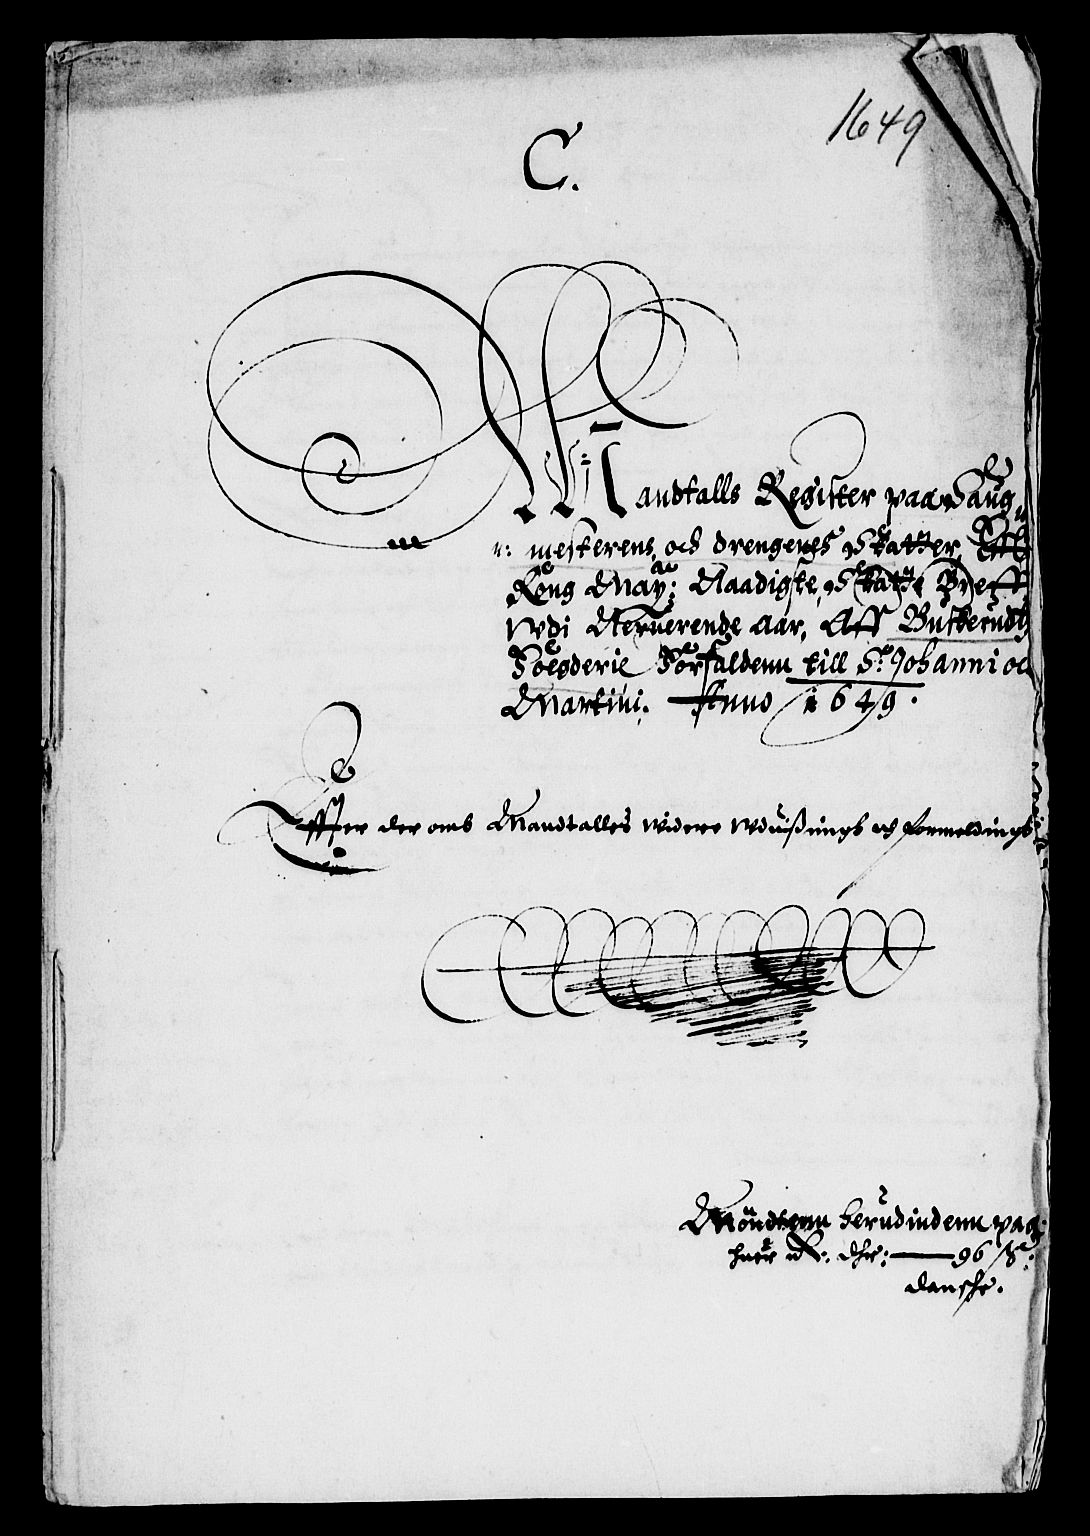 1649
C.
Mandtalls Register paa Saug
mesterens och drengenes Skatter, Eff
Kong May: Naadigste Skatte Breff
Wdi Neruerende Aar, Aff Buskerudtz
Fougderie Forfaldenn till St Johanni oc
Martini. Anno 1649.
Effter der omb Mandtalles widere wduißnings och formeldings
Möndten herudindenn paa
huer Dlr: 96 ß:
danske.